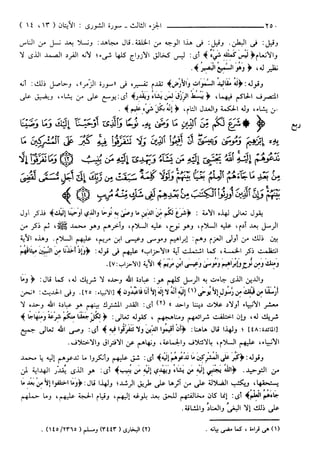 ٢٥٠ الجزء الثالث ـ سورة الشورى : الآيتان ( ١٣ ، ١٤ )
وقيل : في البطن. وقيل : في هذا الوجه من الخلقة. قال مجاهد : ونسلًا بعد نسل من الناس
والأنعام ﴿لَيْسَ كَمِثْلِهِ شَىْءٌ﴾ أي : ليس كخالق الأزواج كلها شيء؛ لأنه الفرد الصمد الذي لا
نظير له، ﴿وَهُوَ السَّمِيعُ الْبَصِيرُ﴾.
وقوله : ﴿لَهُ مَقَالِيدُ السَّمَوَاتِ وَالْأَرْضِ﴾ تقدم تفسيره في «سورة الزمر»، وحاصل ذلك: أنه
المتصرف الحاكم فيهما، ﴿يَبْسُطُ الرِّزْقَ لِمَن يَشَاءُ وَيَقْدِرُ﴾ أي : يوسع على من يشاء، ويضيق على
من يشاء، وله الحكمة والعدل التام، ﴿إِنَّهُ بِكُلِّ شَىْءٍ عَلِيمٌ﴾.
﴿شَرَعَ لَكُم مِّنَ الدِّينِ مَا وَصَّىٰ بِهِ نُوحًا وَالَّذِي أَوْحَيْنَا إِلَيْكَ وَمَا وَصَّيْنَا
بِهِ إِبْرَاهِيمَ وَمُوسَىٰ وَعِيسَىٰ أَنْ أَقِيمُوا الدِّينَ وَلَا تَتَفَرَّقُوا فِيهِ كَبُرَ عَلَى الْمُشْرِكِينَ مَا
تَدْعُوهُمْ إِلَيْهِ اللَّهُ يَجْتَبِي إِلَيْهِ مَن يَشَاءُ وَيَهْدِي إِلَيْهِ مَن يُنِيبُ (١٣) وَمَا تَفَرَّقُوا إِلَّا
مِن بَعْدِ مَا جَاءَهُمُ الْعِلْمُ بَغْيًا بَيْنَهُمْ وَلَوْلَا كَلِمَةٌ سَبَقَتْ مِن رَّبِّكَ إِلَىٰ أَجَلٍ مُّسَمًّى لَّقُضِيَ
بَيْنَهُمْ وَإِنَّ الَّذِينَ أُورِثُوا الْكِتَابَ مِن بَعْدِهِمْ لَفِي شَكٍّ مِّنْهُ مُرِيبٍ (١٤)﴾
يقول تعالى لهذه الأمة : ﴿شَرَعَ لَكُم مِّنَ الدِّينِ مَا وَصَّىٰ بِهِ نُوحًا وَالَّذِي أَوْحَيْنَا إِلَيْكَ﴾، فذكر أول
الرسل بعد آدم، عليه السلام، وهو نوح، عليه السلام، وآخرهم وهو محمد ﷺ، ثم ذكر من
بين ذلك من أولي العزم وهم : إبراهيم وموسى وعيسى ابن مريم، عليهم السلام. وهذه الآية
انتظمت ذكر الخمسة، كما اشتملت آية «الأحزاب» عليهم في قوله : ﴿وَإِذْ أَخَذْنَا مِنَ النَّبِيِّينَ مِيثَاقَهُمْ
وَمِنكَ وَمِن نُّوحٍ وَإِبْرَاهِيمَ وَمُوسَىٰ وَعِيسَى ابْنِ مَرْيَمَ﴾ الآية [الأحزاب: ٧].
والدين الذي جاءت به الرسل كلهم هو : عبادة الله وحده لا شريك له، كما قال : ﴿وَمَا
أَرْسَلْنَا مِن قَبْلِكَ مِن رَّسُولٍ إِلَّا يُوحَىٰ (١) إِلَيْهِ أَنَّهُ لَا إِلَهَ إِلَّا أَنَا فَاعْبُدُونِ﴾ [الأنبياء: ٢٥]. وفي الحديث: «نحن
معشر الأنبياء أولاد علات ديننا واحد» (٢) أي : القدر المشترك بينهم هو عبادة الله وحده لا
شريك له، وإن اختلفت شرائعهم ومناهجهم، كقوله تعالى : ﴿لِكُلٍّ جَعَلْنَا مِنكُمْ شِرْعَةً وَمِنْهَاجًا﴾
[المائدة: ٤٨] ؛ ولهذا قال هاهنا : ﴿أَنْ أَقِيمُوا الدِّينَ وَلَا تَتَفَرَّقُوا فِيهِ﴾ أي : وصى الله تعالى جميع
الأنبياء، عليهم السلام، بالائتلاف والجماعة، ونهاهم عن الافتراق والاختلاف.
وقوله : ﴿كَبُرَ عَلَى الْمُشْرِكِينَ مَا تَدْعُوهُمْ إِلَيْهِ﴾ أي : شق عليهم وأنكروا ما تدعوهم إليه يا محمد
من التوحيد. ﴿اللَّهُ يَجْتَبِي إِلَيْهِ مَن يَشَاءُ وَيَهْدِي إِلَيْهِ مَن يُنِيبُ﴾ أي : هو الذي يُقدّر الهداية لمن
يستحقها، ويكتب الضلالة على من آثرها على طريق الرشد؛ ولهذا قال: ﴿وَمَا اخْتَلَفُوا إِلَّا مِنْ بَعْدِ مَا
جَاءَهُمُ الْعِلْمُ﴾ أي : إنما كان مخالفتهم للحق بعد بلوغه إليهم، وقيام الحجة عليهم، وما حملهم
على ذلك إلا البغيُ والعنادُ والمشاقة.
(١) هي قراءة ، كما مضى بيانه . (٢) البخاري (٣٤٤٣) ومسلم (٢٣٦٥/١٤٥) .
ربع